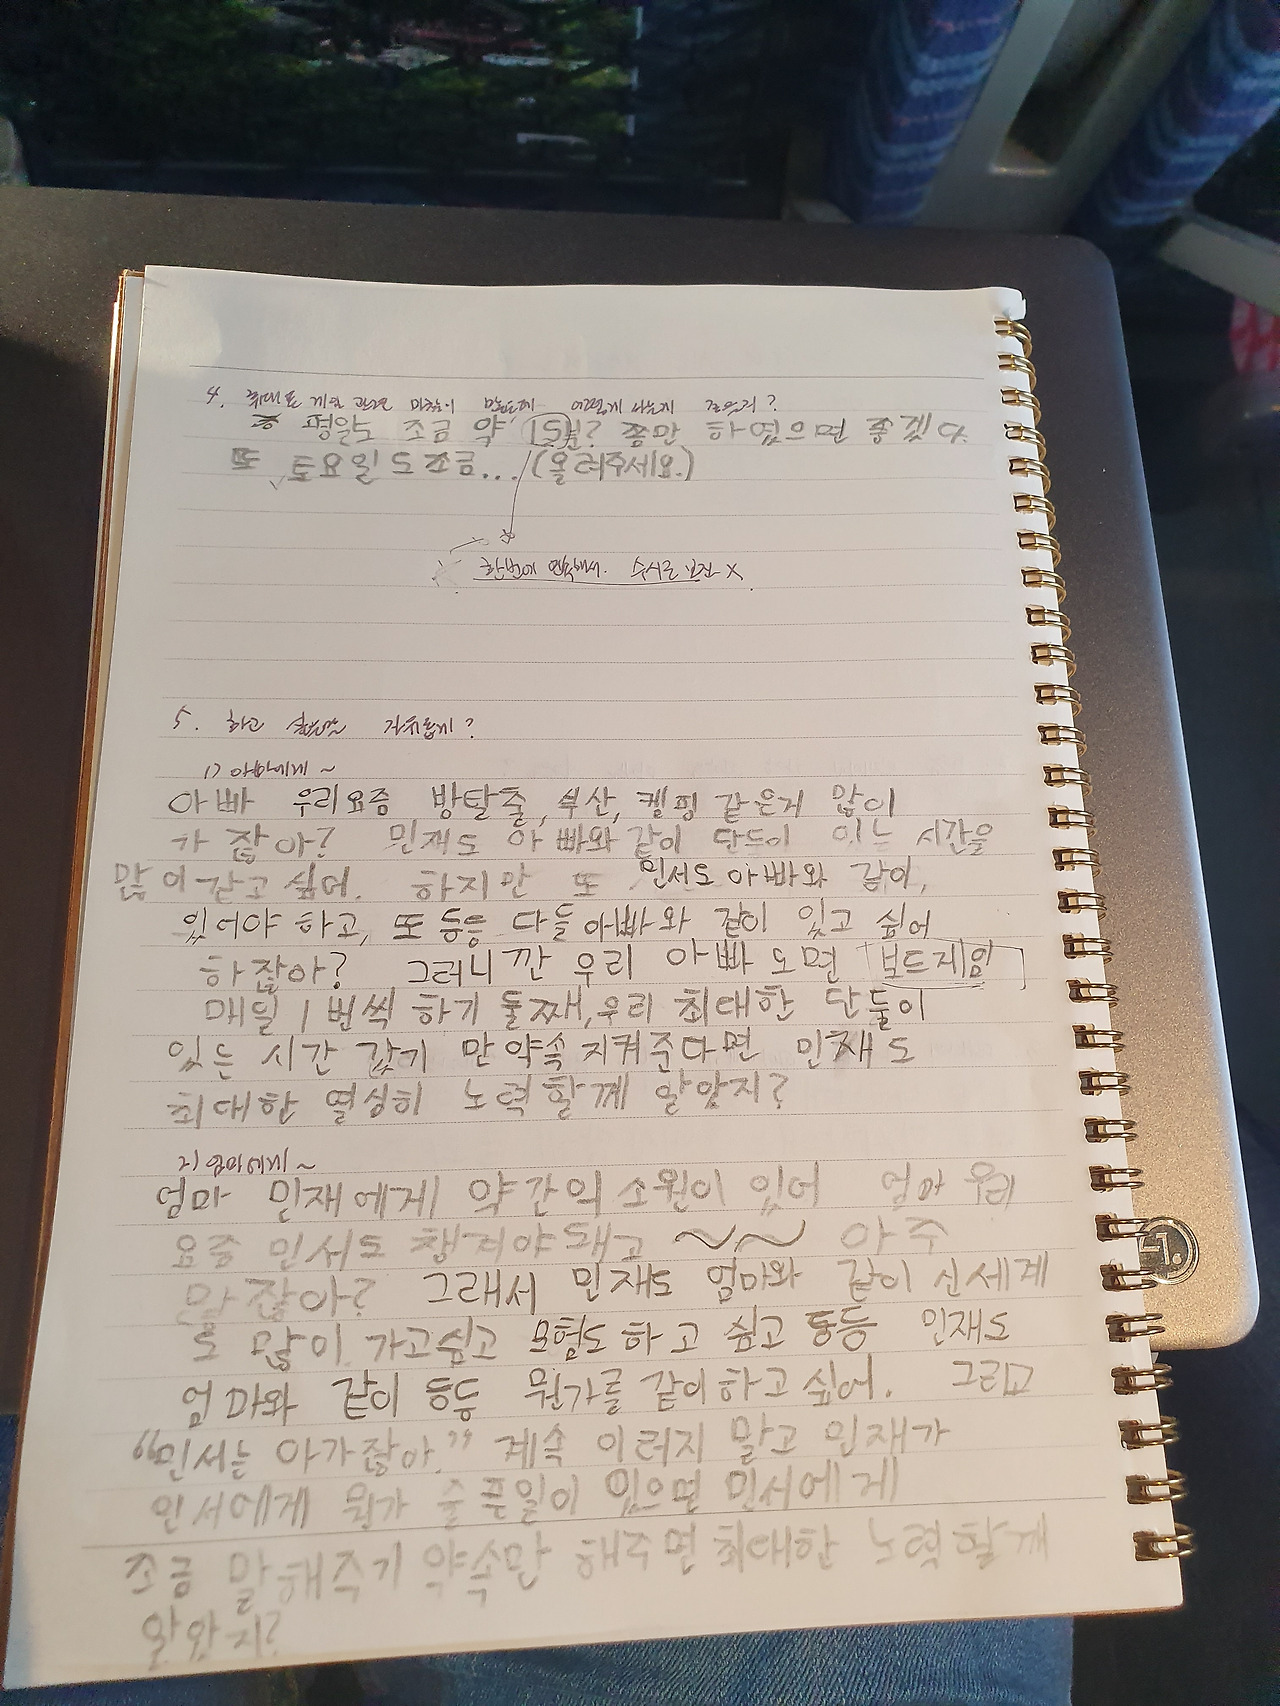 4. 휴대폰 게임 관련 마찰이 많은데 어떻게 하는게 좋을지?
평일도 조금 약 15분? 쯤만 하였으면 좋겠다.
또 토요일도 조금... (올려주세요.)
한번에 연속해서. 수시로 보잔 X
5. 하고 싶은말 자유롭게?
1) 아빠에게 ~
아빠 우리요즘 방탈출, 부산, 켐핑 같은거 많이
가 잖아? 민재도 아빠와 같이 단둘이 있는 시간을
많이 갇고 싶어. 하지만 또 민서도 아빠와 같이,
있어야 하고, 또 등등 다들 아빠와 같이 있고 싶어
하잖아? 그러니깐 우리 아빠 오면 보드게임
매일 1번씩 하기 둘째, 우리 최대한 단둘이
있는 시간 갖기 만 약속 지켜준다면 민재도
최대한 열심히 노력할께 알았지?
2) 엄마에게 ~
엄마 민재에게 약간의 소원이 있어 엄마 우리
요즘 민서도 챙겨야돼고 ~~ 아주
많잖아? 그래서 민재도 엄마와 같이 신세계
도 많이 가고싶고 모험도 하고 싶고 등등 민재도
엄마와 같이 등등 뭔가를 같이하고 싶어. 그리고
"민서는 아가잖아." 계속 이러지 말고 민재가
민서에게 뭔가 슬픈일이 있으면 민서에게
조금 말해주기 약속만 해주면 최대한 노력할께
알았지?